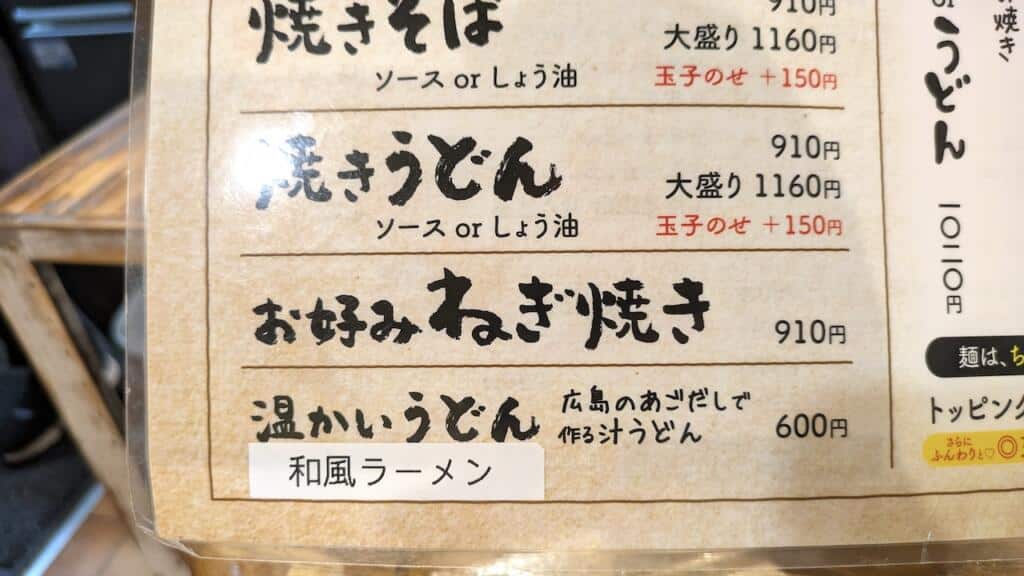 焼きそば
910円
大盛り 1160円
ソース or しょう油
玉子のせ +150円
焼きうどん
910円
大盛り 1160円
ソース or しょう油
玉子のせ +150円
お好みねぎ焼き
910円
温かいうどん
広島のあごだしで
作る汁うどん
600円
和風ラーメン
焼き
or うどん 一〇二〇円
麺は、
トッピング
さらに
ふんわりと♡